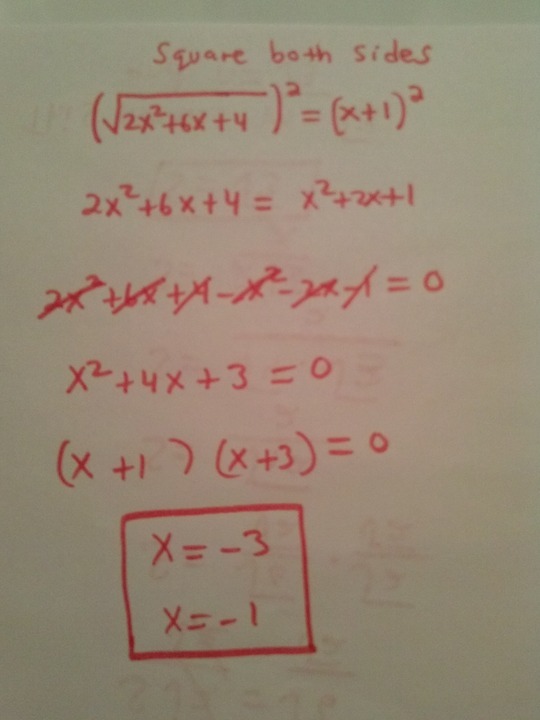 Square both sides
(√2x²+6x+4)² = (x+1)²
2x²+6x+4 = x²+2x+1
2x²+6x+4-x²-2x-1 = 0
x²+4x+3 = 0
(x+1)(x+3) = 0
x = -3
x = -1